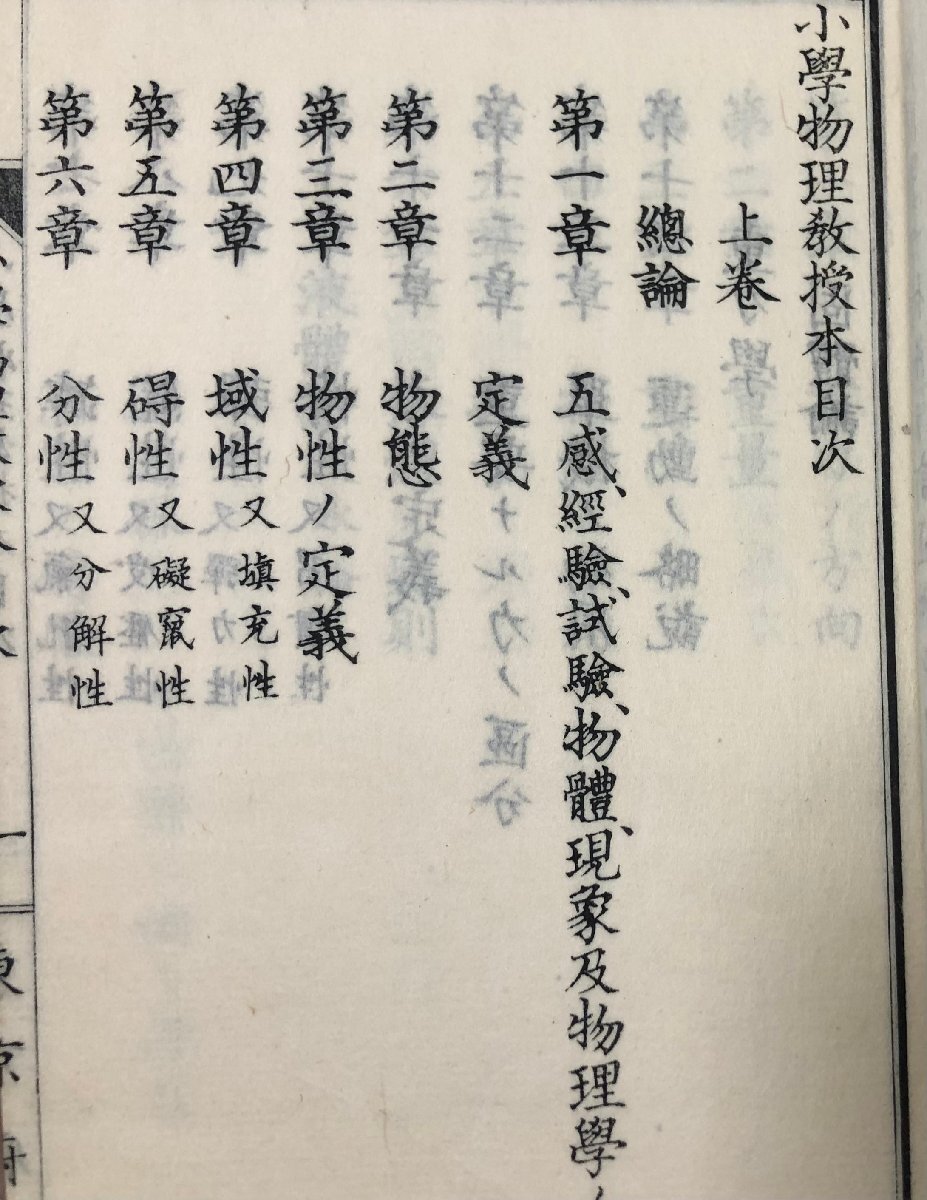 小學物理教授本目次
上卷
總論
第一章 五感、經驗、試驗、物體、現象及物理學ノ
定義
第二章 物態
第三章 物性ノ定義
第四章 域性又填充性
第五章 碍性又礙竄性
第六章 分性又分解性
一
東京府